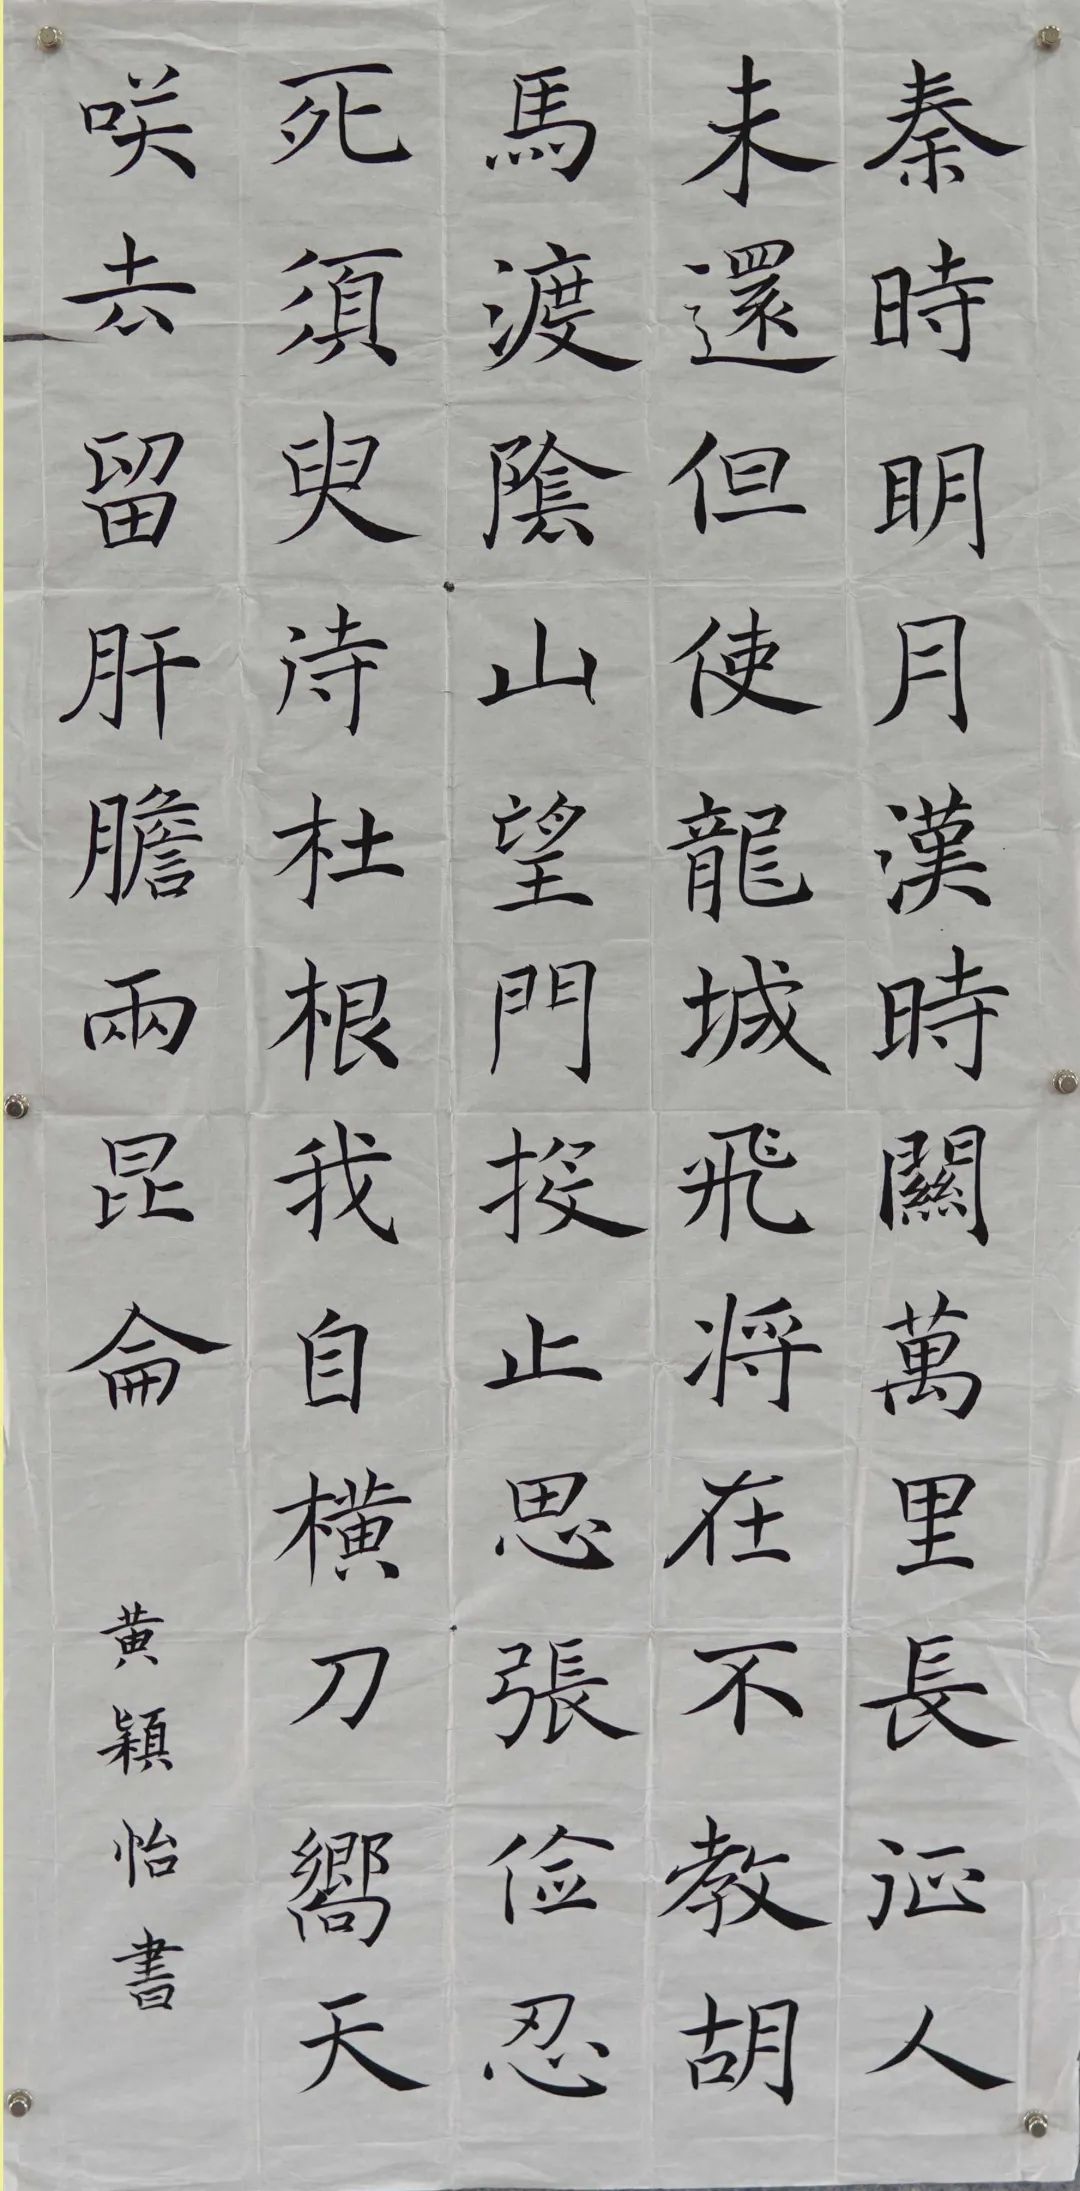 秦時明月漢時關萬里長征人
未還但使龍城飛将在不教胡
馬渡陰山望門投止思張俭忍
死須臾待杜根我自横刀嚮天
咲去留肝膽兩昆侖
黄穎怡書